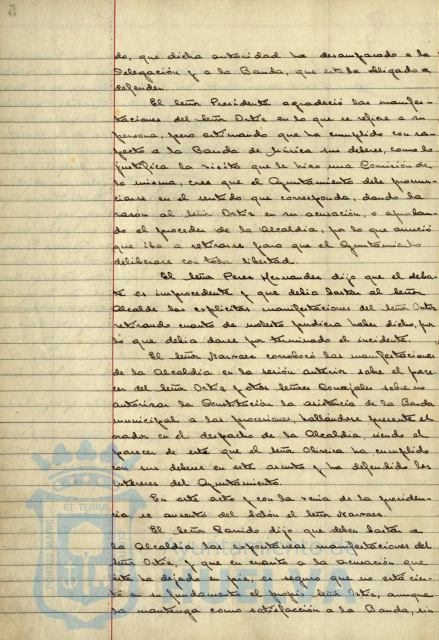 do, que dicha autoridad ha desamparado a la
Delegación y a la Banda, que está obligado a
defender.
El Señor Presidente agradeció las manifes-
taciones del Señor Ortiz en lo que se refiere a su
persona, pero estimando que ha cumplido con res-
pecto a la Banda de Música sus deberes, como lo
justifica la visita que le hizo una Comisión de
la misma, cree que el Ayuntamiento debe pronun-
ciarse en el sentido que corresponda, dando la
razón al Señor Ortiz en su acusación, o aproban-
do el proceder de la Alcaldía, por lo que anunció
que iba a retirarse para que el Ayuntamiento
deliberase con toda libertad.
El Señor Perez Hernandez dijo que el deba-
te es improcedente y que debía bastar al Señor
Alcalde las explicitas manifestaciones del Señor Ortiz
retirando cuanto de molesto pudiera haber dicho, por
lo que debía darse por terminado el incidente.
El Señor Narvaez corroboró las manifestaciones
de la Alcaldía en la sesión anterior sobre el pare-
cer del Señor Ortiz y otros Señores Concejales sobre no
autorizar la Constitución la asistencia de la Banda
municipal a las procesiones, hallándose presente el
orador en el despacho de la Alcaldía, siendo el
parecer de este que el Señor Oliveira ha cumplido
con sus deberes en este asunto y ha defendido los
intereses del Ayuntamiento.
En este acto y con la venia de la presiden-
cia se ausentó del Salón el Señor Narvaez
El Señor Garrido dijo que deben bastar a
la Alcaldía las espontáneas manifestaciones del
Señor Ortiz, y que en cuanto a la acusación que
éste ha dejado en pie, es seguro que no está cier-
to en su fundamento el propio Señor Ortiz, aunque
la mantenga como satisfacción a la Banda, sin